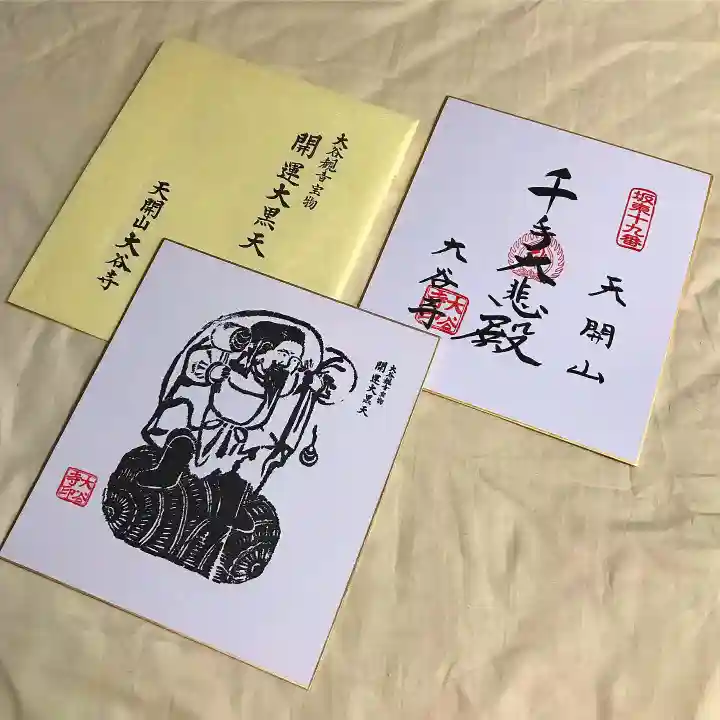 大谷観音宝物
開運大黒天
天開山大谷寺
坂東十九番
天開山
千手大悲殿
大谷寺
大谷寺
大谷観音宝物
開運大黒天
大谷寺印